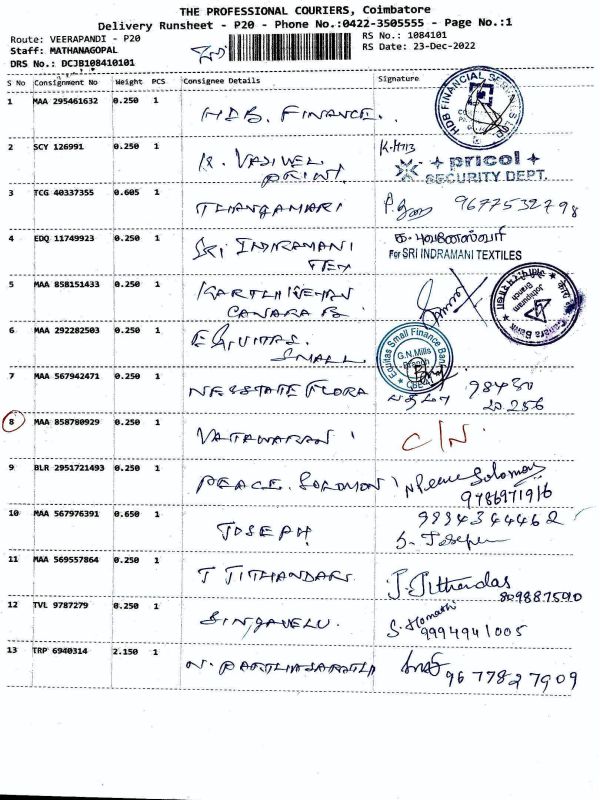 THE PROFESSIONAL COURIERS, Coimbatore
Delivery Runsheet - P20 - Phone No.:0422-3505555 - Page No.:1
Route: VEERAPANDI - P20
RS No.: 1084101
Staff: MATHANAGOPAL
RS Date: 23-Dec-2022
DRS No.: DCJB108410101
S No Consignment No Weight PCS Consignee Details Signature
1 MAA 295461632 0.250 1 HDB. FINANCE..
HDB FINANCIAL
2 SCY 126991 0.250 1 K. VADIVEL
PRINT.
pricol
SECURITY DEPT.
3 TCG 40337355 0.605 1 THANGAMARI 9677532798
4 EDQ 11749923 0.250 1 SRI INDRAMANI
TEX
க. புவனேஸ்வரி
For SRI INDRAMANI TEXTILES
5 MAA 858151433 0.250 1 KARTHIKEYAN
CANARA B.
Canara Bank
Jothipuram
Branch
6 MAA 292282503 0.250 1 EQUITAS.
SMALL
Equitas Small Finance Bank
G.N.Mills
Branch
7 MAA 567942471 0.250 1 NEWSTATE FLORA 98430
20256
8 MAA 858780929 0.250 1 C/N.
9 BLR 2951721493 0.250 1 PEACE. SOLOMON N Peace Solomon
9786971916
10 MAA 567976391 0.650 1 JOSEPH. 9894344462
S. Joseph
11 MAA 569557864 0.250 1 T JITHANDARS J. Jithendas
12 TVL 9787279 0.250 1 SINGAVELU. S. Homathi
9994941005
13 TRP 6940314 2.150 1 N. PARTHASARATHI 9677827909